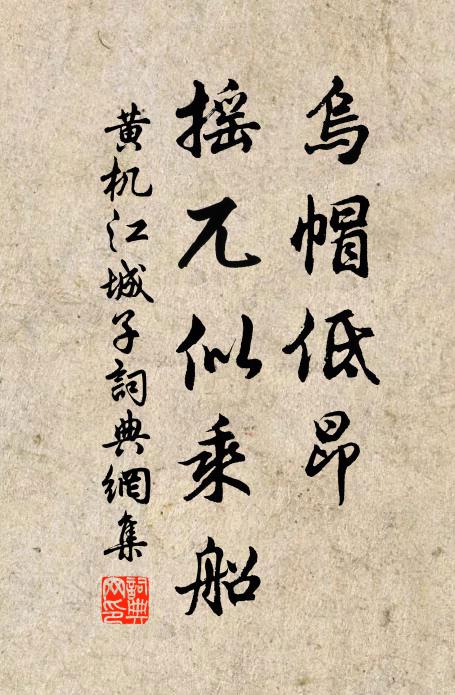 烏帽低昂
摇兀似乘船
黄机江城子詞典網集
詞典网印